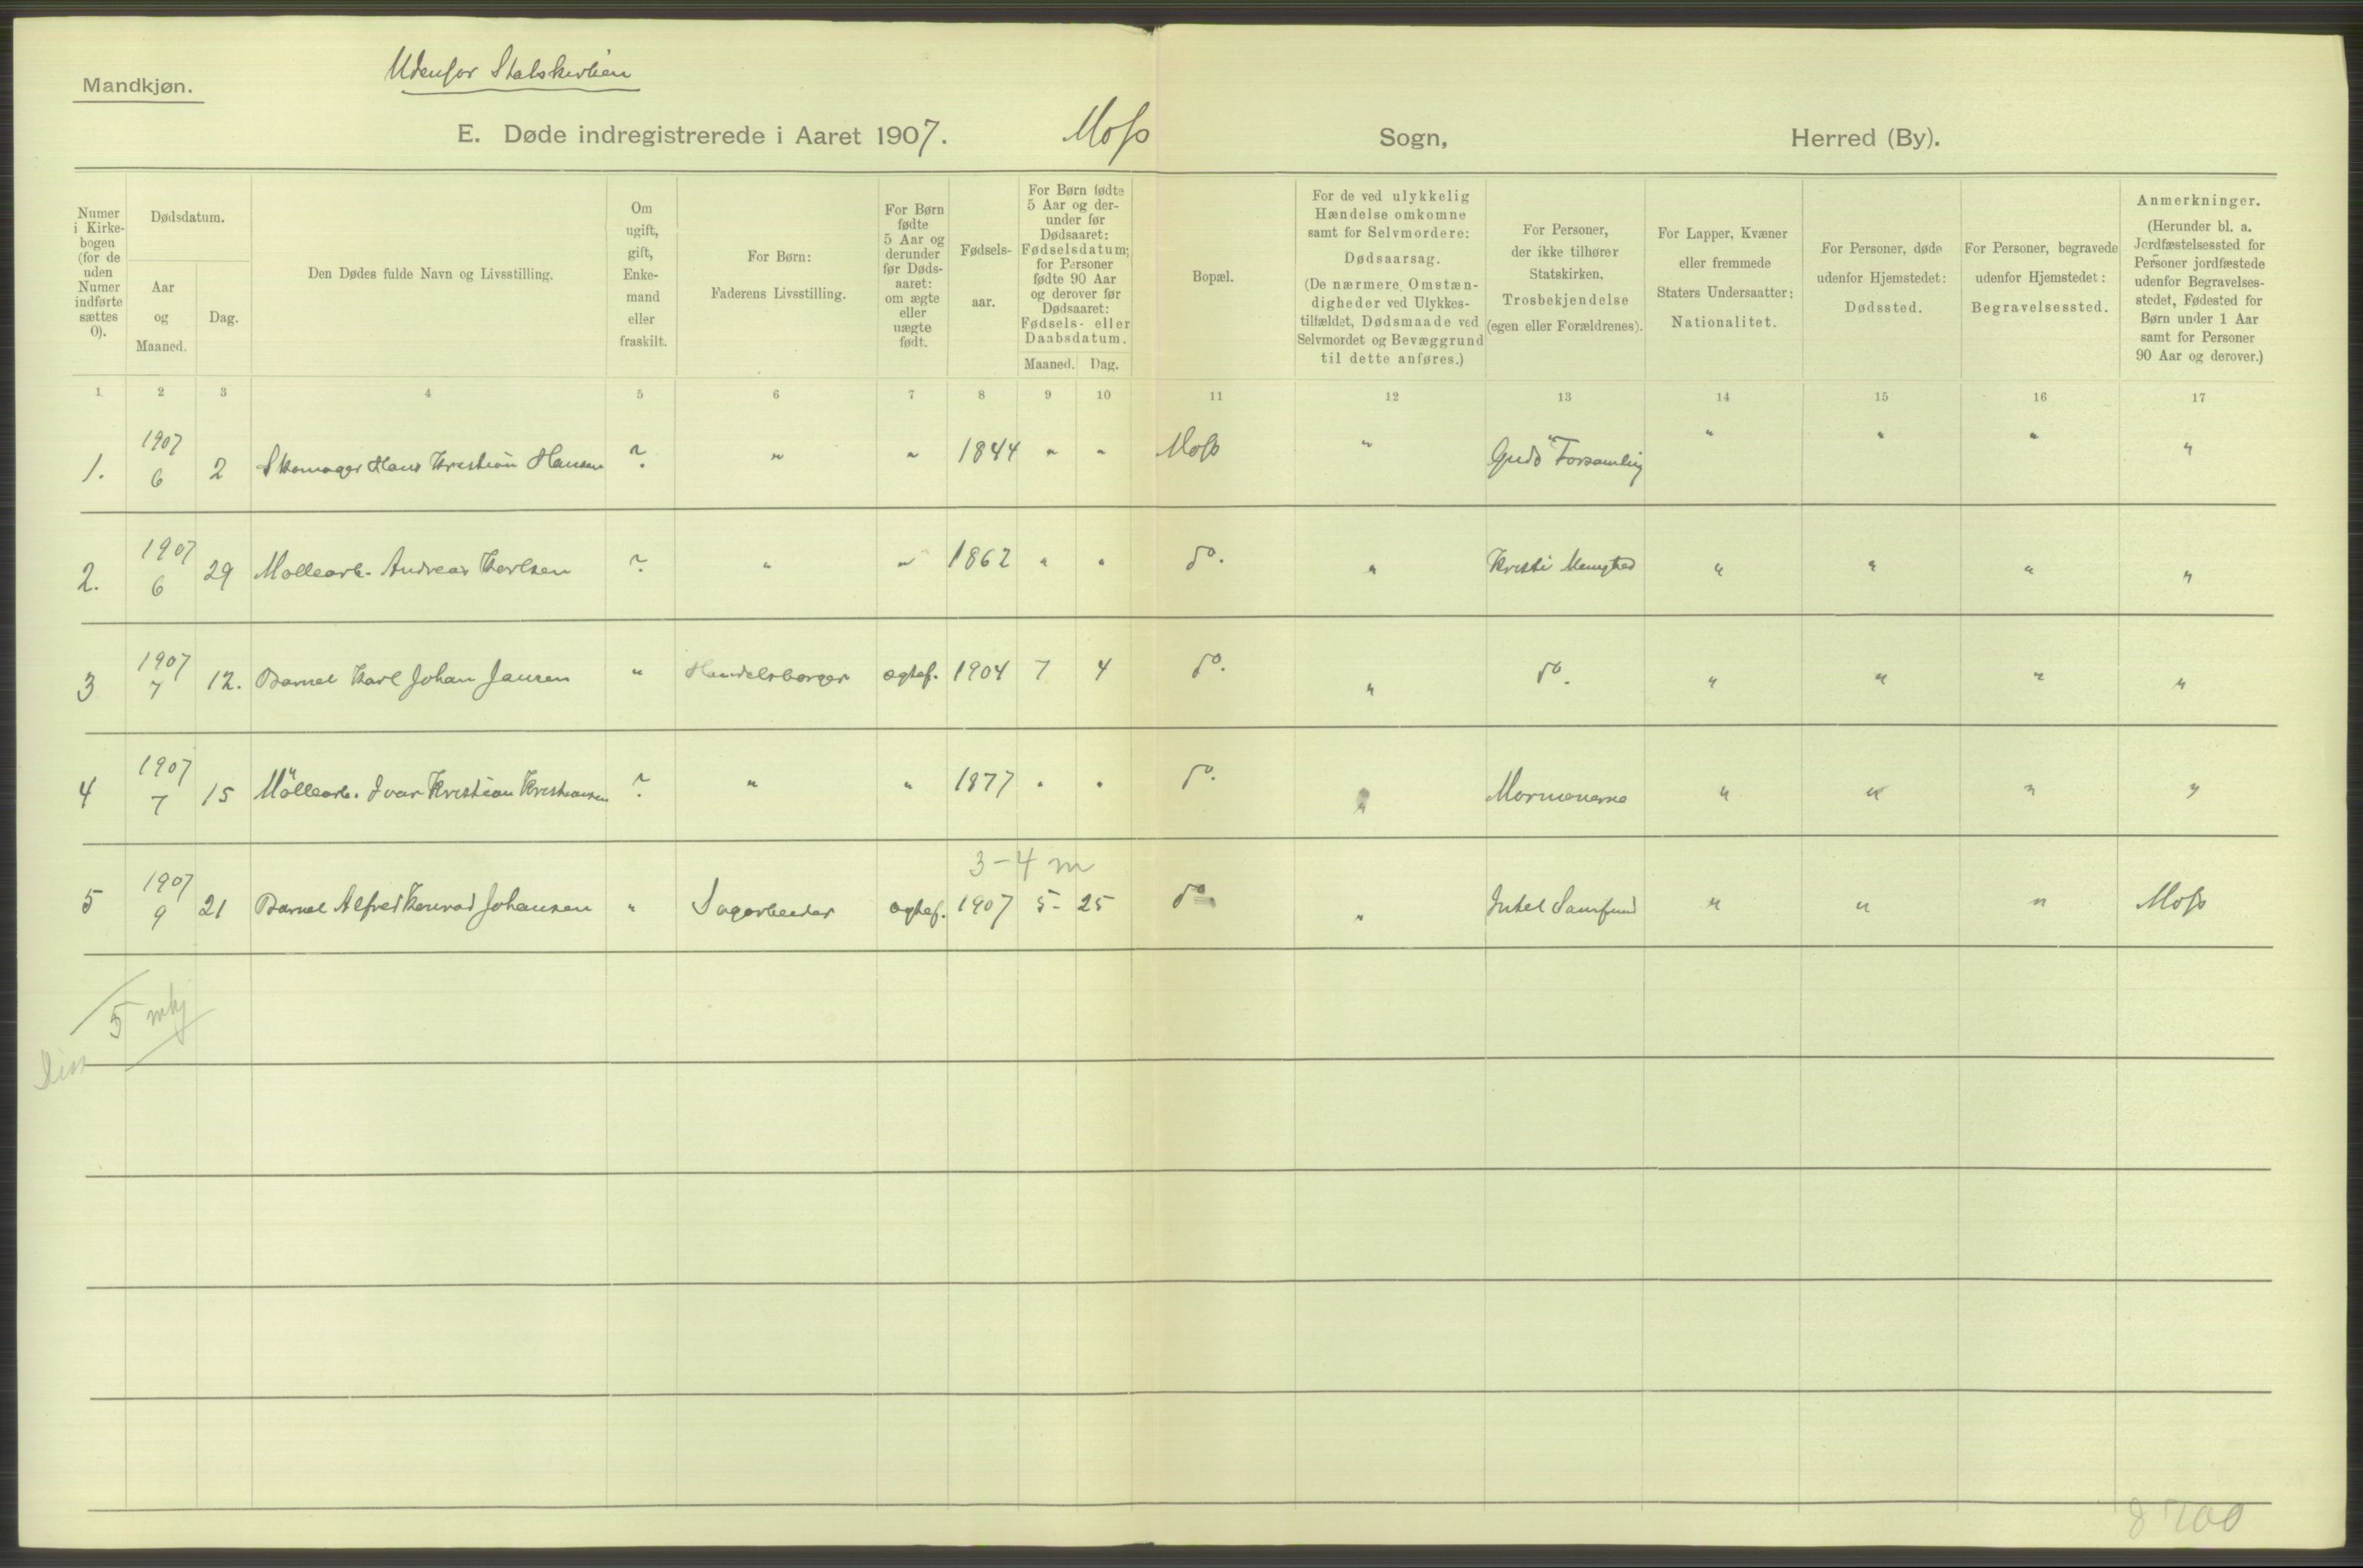 Mandkjøn.
Udenfor Statskirken
E. Døde indregistrerede i Aaret 1907. Moss Sogn, Herred (By).
Numer i Kirkebogen (for de uden Numer indførte sættes 0).
Dødsdatum.
Aar og Maaned.
Dag.
Den Dødes fulde Navn og Livsstilling.
Om ugift, gift, Enkemand eller fraskilt.
For Børn: Faderens Livsstilling.
For Børn fødte 5 Aar og derunder før Dødsaaret: om ægte eller uægte født.
Fødselsaar.
For Børn fødte 5 Aar og derunder før Dødsaaret: Fødselsdatum; for Personer fødte 90 Aar og derover før Dødsaaret: Fødsels- eller Daabsdatum.
Maaned. Dag.
Bopæl.
For de ved ulykkelig Hændelse omkomne samt for Selvmordere: Dødsaarsag. (De nærmere Omstændigheder ved Ulykkestilfældet, Dødsmaade ved Selvmordet og Bevæggrund til dette anføres.)
For Personer, der ikke tilhører Statskirken, Trosbekjendelse (egen eller Forældrenes).
For Lapper, Kvæner eller fremmede Staters Undersaatter: Nationalitet.
For Personer, døde udenfor Hjemstedet: Dødssted.
For Personer, begravede udenfor Hjemstedet: Begravelsessted.
Anmerkninger. (Herunder bl. a. Jordfæstelsessted for Personer jordfæstede udenfor Begravelsesstedet, Fødested for Børn under 1 Aar samt for Personer 90 Aar og derover.)
1 2 3 4 5 6 7 8 9 10 11 12 13 14 15 16 17
1. 1907 6 2 Skomager Hans Kristian Hansen ? " " 1844 " " Moss " Guds Forsamling " " " "
2. 1907 6 29 Møllearb. Andreas Karlsen ? " " 1862 " " do. " Kristi Menighed " " " "
3 1907 7 12. Barnet Karl Johan Jansen " Handelsborger ægtef. 1904 7 4 do. " do. " " " "
4 1907 7 15 Møllearb. Ivar Kristian Kristiansen ? " " 1877 " " do. " Mormonerne " " " "
3-4 m
5 1907 9 21 Barnet Alfred Konrad Johansen " Sagarbeider ægtef. 1907 5 - 25 do " Intet Samfund " " " Moss
5 mkj